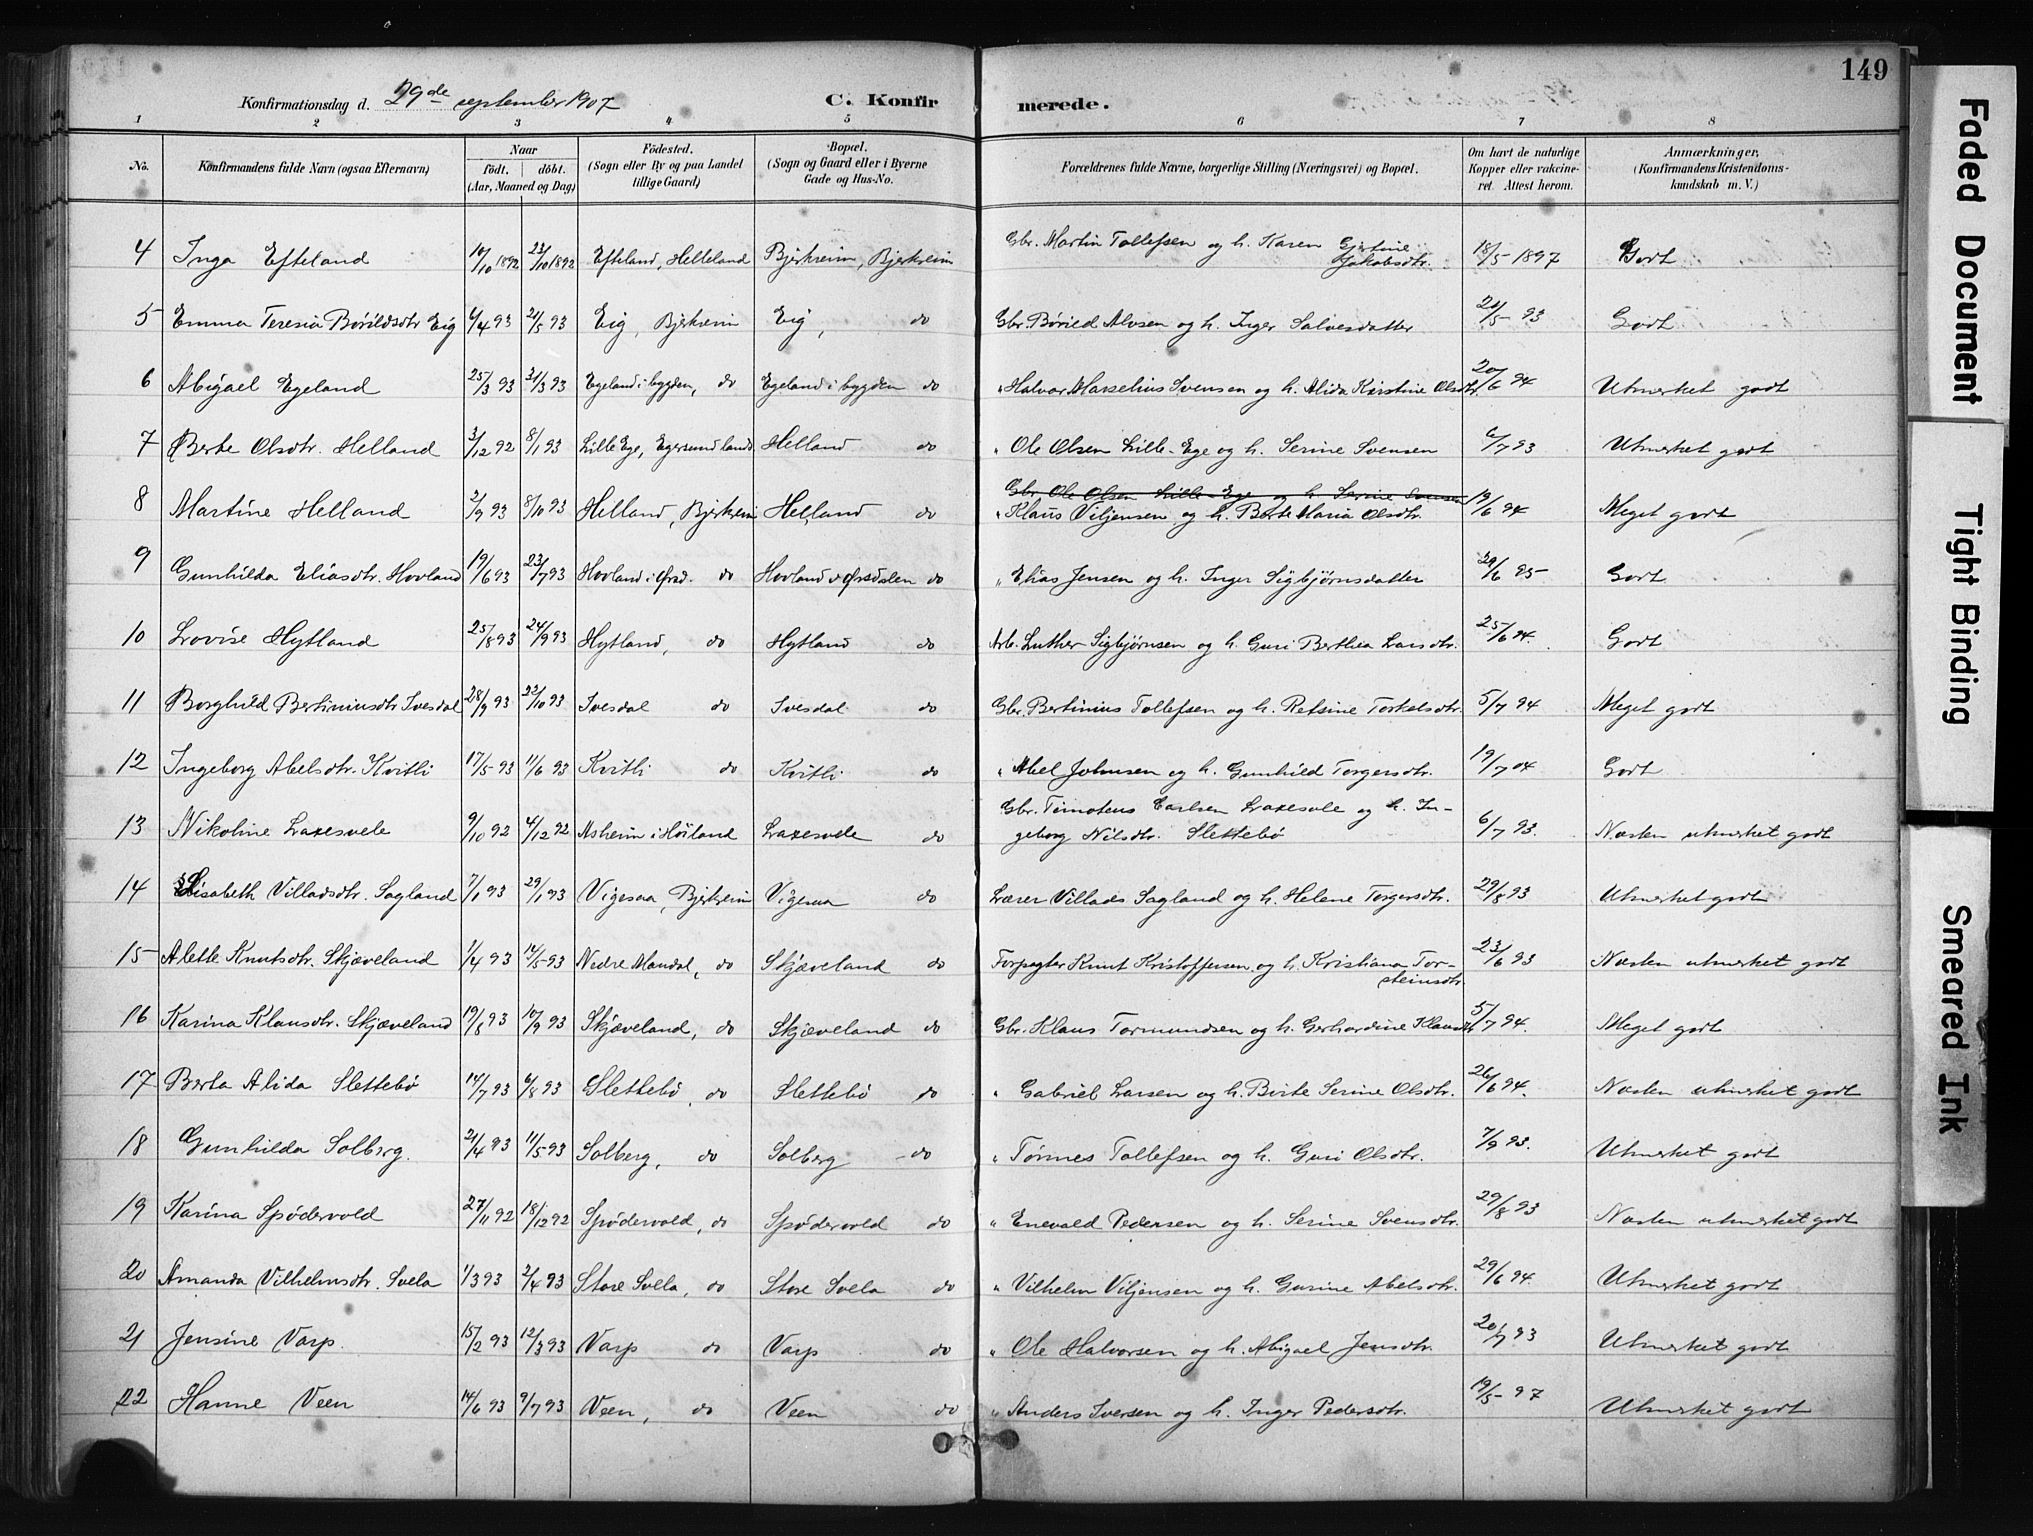 149
Konfirmationsdag d. 29de september 1907 C. Konfirmerede.
1 2 3 4 5 6 7 8
No. Konfirmandens fulde Navn (ogsaa Efternavn) Naar født, døbt. (Aar, Maaned og Dag) Fødested. (Sogn eller By og paa Landet tillige Gaard) Bopæl. (Sogn og Gaard eller i Byerne Gade og Hus-No. Forældrenes fulde Navne, borgerlige Stilling (Næringsvei) og Bopæl. Om havt de naturlige Kopper eller vakcineret. Attest herom. Anmærkninger, (Konfirmandens Kristendomskundskab m. V.)
4 Inga Efteland 10/10 1892 23/10 1892 Efteland, Helleland Bjerkreim, Bjerkreim Gbr. Martin Tollefsen og h. Karen Gjertine Jakobsdtr. 18/5 1897 Godt
5 Emma Teresia Børildsdtr Eig 6/4 93 21/5 93 Eig, Bjerkreim Eig, do Gbr. Børild Alvsen og h. Inger Salvesdatter 21/5 93 Godt
6 Abigael Egeland 25/3 93 31/3 93 Egeland i bygden, do Egeland i bygden do " Halvor Marselius Svensen og h. Alida Kristine Olsdtr. 20/6 94 Utmerket godt
7 Berte Olsdtr. Helland 3/12 92 8/1 93 Lille Ege, Egersund lands Helland do " Ole Olsen Lille-Ege og h. Serine Svensen 6/7 93 Utmerket godt
8 Martine Helland 2/9 93 8/10 93 Helland, Bjerkreim Helland do Gbr Ole Olsen Lille-Ege og h. Serine Svensen
" Klaus Viljensen og h. Berte Maria Olsdtr. 19/6 94 Meget godt
9 Gunhilda Eliasdtr. Hovland 19/6 93 23/7 93 Hovland i Ørsd. do Hovland i Ørsdalen do " Elias Jensen og h. Inger Sigbjørnsdatter 29/6 95 Godt
10 Lovise Hytland 25/8 93 24/9 93 Hytland, do Hytland do Arb. Luther Sigbjørnsen og h. Guri Berthea Larsdtr. 25/6 94. Godt
11 Borghild Bertiniusdtr Ivesdal 28/9 93 22/10 93 Ivesdal do Ivesdal do Gbr. Bertinius Tollefsen og h. Retsine Torkelsdtr. 5/7 94 Meget godt
12 Ingeborg Abelsdtr. Kvitli 17/5 93 11/6 93 Kvitli do Kvitli do " Abel Johnsen og h. Gunhild Torgersdtr. 19/7 04 Godt
13 Nikoline Laxesvele 9/10 92 4/12 92 Asheim i Høiland Laxesvele do Gbr. Timoteus Carlsen Laxesvele og h. In-
geborg Nilsdtr. Slettebø 6/7 93. Næsten utmerket godt
14 Elisabeth Villadsdtr. Sagland 7/1 93 29/1 93 Vigesaa, Bjerkreim Vigesaa do Lærer Villads Sagland og h. Helene Torgersdtr. 29/8 93 Utmerket godt
15 Alette Knutsdtr. Skjæveland 1/4 93 14/5 93 Nedre Maudal, do Skjæveland do Forpagter Knut Kristoffersen og h. Kristiana Tor-
steinsdtr. 23/6 93 Næsten utmerket godt
16 Karina Klausdtr. Skjæveland 19/8 93 10/9 93 Skjæveland, do Skjæveland do Gbr. Klaus Tormundsen og h. Gerhardine Klausdtr 5/7 94. Meget godt
17 Berta Alida Slettebø 14/7 93 6/8 93 Slettebø, do Slettebø do " Gabriel Larsen og h. Birte Serine Olsdtr. 26/6 94. Næsten utmerket godt
18 Gunhilda Solberg. 21/4 93 11/5 93 Solberg, do Solberg do " Tønnes Tollefsen og h. Guri Olsdtr. 7/9 93. Utmerket godt
19 Karina Spødervold 27/11 92 18/12 92 Spødervold, do Spødervold do " Enevald Pedersen og h. Serine Svensdtr. 29/8 93 Næsten utmerket godt
20 Amanda Vilhelmsdtr. Svela 1/3 93 2/4 93 Store Svela, do Store Svela do " Vilhelm Viljensen og h. Gurine Abelsdtr. 29/6 94. Utmerket godt
21 Jensine Varp. 15/2 93 12/3 93 Varp do Varp do " Ole Halvorsen og h. Abigael Jensdtr. 20/7 93 Utmerket godt
22 Hanne Veen 14/6 93 9/7 93 Veen, do Veen do " Anders Iversen og h. Inger Pedersdtr. 19/5 97 Utmerket godt
Faded Document
Tight Binding
Smeared Ink